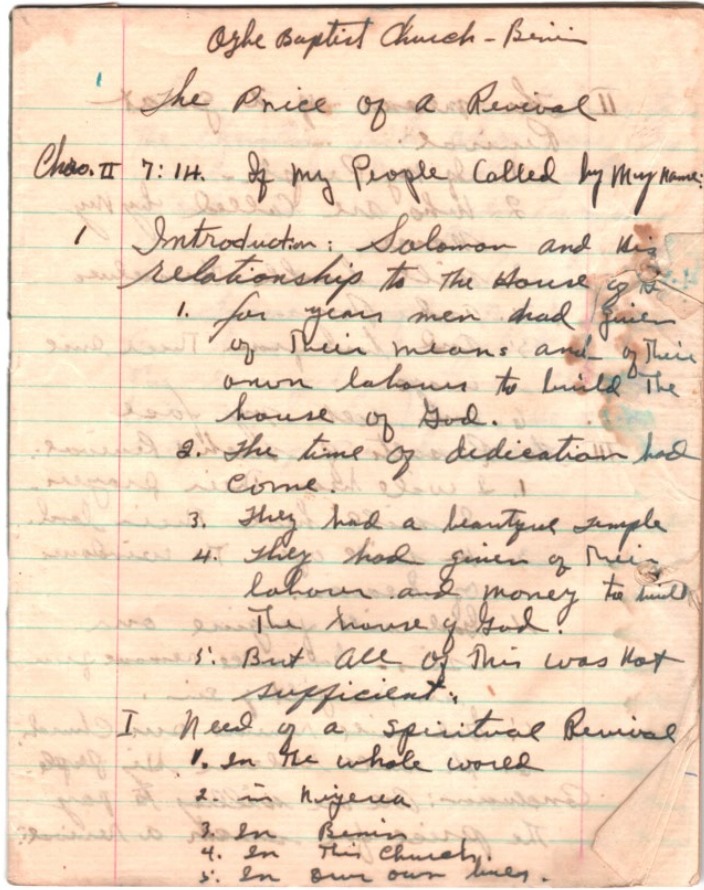 Oghe Baptist Church - Benin
The Price of a Revival
Chro. II 7:14. If my People Called by My name:
1 Introduction: Solomon and his
relationship to The House of G
1. for years men had given
of Their means and of Their
own labours to build The
house of God.
2. The time of dedication had
Come.
3. They had a beautyful Temple
4. They had given of Their
labour and money to build
The house of God.
5. But All of This was Not
sufficient.
I Need of a Spiritual Revival
1. In the whole world
2. in Nigeria
3. In Benin
4. In This Church.
5. In our own lives.